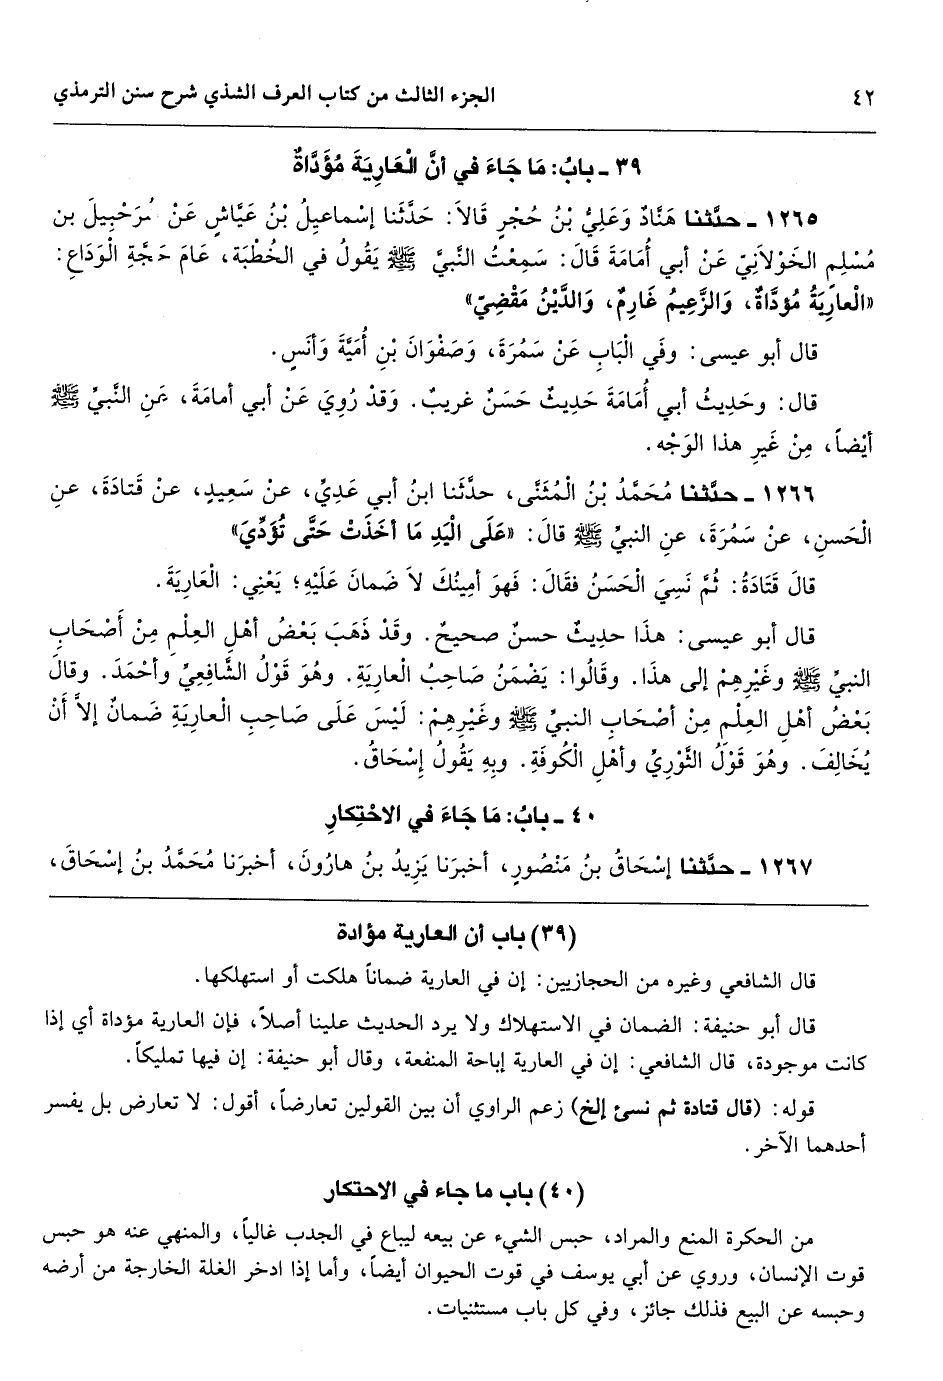 ٤٢ الجزء الثالث من كتاب العرف الشذي شرح سنن الترمذي
٣٩ ـ بابُ: مَا جَاءَ في أنَّ الْعَارِيَةَ مُؤَدَّاةٌ
١٢٦٥ ـ حدَّثنا هَنَّادٌ وَعَلِيُّ بْنُ حُجْرٍ قَالاَ: حَدَّثَنا إسْماعِيلُ بْنُ عَيَّاشٍ عَنْ شُرَحْبِيلَ بن
مُسْلِمٍ الخَوْلاَنِيّ عَنْ أبي أُمَامَةَ قَالَ: سَمِعْتُ النَّبيَّ ﷺ يَقُولُ في الخُطْبَة، عَامَ حَجَّةِ الْوَدَاعِ:
«الْعارِيَةُ مُؤدَّاةٌ، وَالزَّعِيمُ غَارِمٌ، وَالدَّيْنُ مَقْضِيّ»
قال أبو عيسى: وفَي الْبَابِ عَنْ سَمُرَةَ، وَصَفْوَانَ بْنِ أُمَيَّةَ وَأنَسٍ.
قال: وحَدِيثُ أبي أُمَامَةَ حَدِيثٌ حَسَنٌ غريبٌ. وَقَدْ رُوِيَ عَنْ أبي أمامَةَ، عَنِ النَّبيِّ ﷺ
أيْضاً، مِنْ غَيرِ هذا الوَجْه.
١٢٦٦ ـ حدَّثنا مُحَمَّدُ بْنُ الْمُثَنَّى، حدَّثَنا ابنُ أبي عَدِيٍّ، عنْ سَعِيدٍ، عنْ قَتادَةَ، عنِ
الْحَسنِ، عنْ سَمُرَةَ، عنِ النبيِّ ﷺ قالَ: «عَلَى الْيَدِ مَا أخَذَتْ حَتَّى تُؤَدِّيَ»
قالَ قَتَادَةُ: ثُمَّ نَسِيَ الْحَسَنُ فقَالَ: فَهوَ أمِينُكَ لاَ ضَمانَ عَلَيْهِ؛ يَعْنِي: الْعَارِيَةَ.
قال أبو عيسى: هذَا حديثٌ حسنٌ صحيحٌ. وقَدْ ذَهَبَ بَعْضُ أهْلِ العِلْمِ مِنْ أَصْحَابِ
النبيِّ ﷺ وغَيْرِهِمْ إلى هذَا. وقَالُوا: يَضْمَنُ صَاحِبُ الْعارِيَةِ. وهُوَ قَوْلُ الشَّافِعيِّ وأحْمَدَ. وقالَ
بَعْضُ أهْلِ العِلْمِ مِنْ أصْحَابِ النبيِّ ﷺ وغَيْرِهِمْ: لَيْسَ عَلَى صَاحِبِ العَارِيَةِ ضَمانٌ إلاَّ أَنْ
يُخَالِفَ. وهُوَ قَوْلُ الثَّوْرِيِّ وأهْلِ الْكُوفَةِ. وبِهِ يَقُولُ إِسْحَاقُ.
٤٠ ـ بابُ: مَا جَاءَ في الاحْتِكارِ
١٢٦٧ ـ حدَّثنا إسْحَاقُ بنُ مَنْصُورٍ، أخبرَنا يَزِيدُ بنُ هارُونَ، أخبرَنا مُحَمَّدُ بنُ إسْحَاقَ،
(٣٩) باب أن العارية مؤادة
قال الشافعي وغيره من الحجازيين: إن في العارية ضماناً هلكت أو استهلكها.
قال أبو حنيفة: الضمان في الاستهلاك ولا يرد الحديث علينا أصلاً، فإن العارية مؤداة أي إذا
كانت موجودة، قال الشافعي: إن في العارية إباحة المنفعة، وقال أبو حنيفة: إن فيها تمليكاً.
قوله: (قال قتادة ثم نسئ إلخ) زعم الراوي أن بين القولين تعارضاً، أقول: لا تعارض بل يفسر
أحدهما الآخر.
(٤٠) باب ما جاء في الاحتكار
من الحكرة المنع والمراد، حبس الشيء عن بيعه ليباع في الجدب غالياً، والمنهي عنه هو حبس
قوت الإنسان، وروي عن أبي يوسف في قوت الحيوان أيضاً، وأما إذا ادخر الغلة الخارجة من أرضه
وحبسه عن البيع فذلك جائز، وفي كل باب مستثنيات.